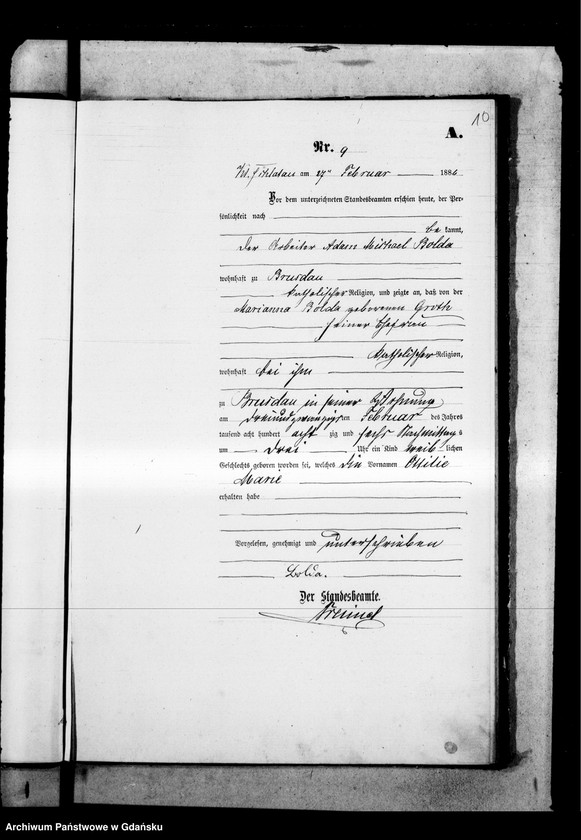 10
A.
Nr. 9
am 27ten Februar 1886
Vor dem unterzeichneten Standesbeamten erschien heute, der Per-
sönlichkeit nach
be kannt,
der Arbeiter Adam Michael Bolda
wohnhaft zu Brusdau
katholischer Religion, und zeigte an, daß von der
Marianna Bolda geborenen Groth
seiner Ehefrau
katholischer Religion,
wohnhaft bei ihm
zu Brusdau in seiner Wohnung
am dreiundzwanzigsten Februar des Jahres
tausend acht hundert acht zig und sechs Nachmittags
um drei Uhr ein Kind weib lichen
Geschlechts geboren worden sei, welches die Vornamen Ottilie
Marie
erhalten habe
Vorgelesen, genehmigt und unterschrieben
Bolda.
Der Standesbeamte.
Archiwum Państwowe w Gdańsku